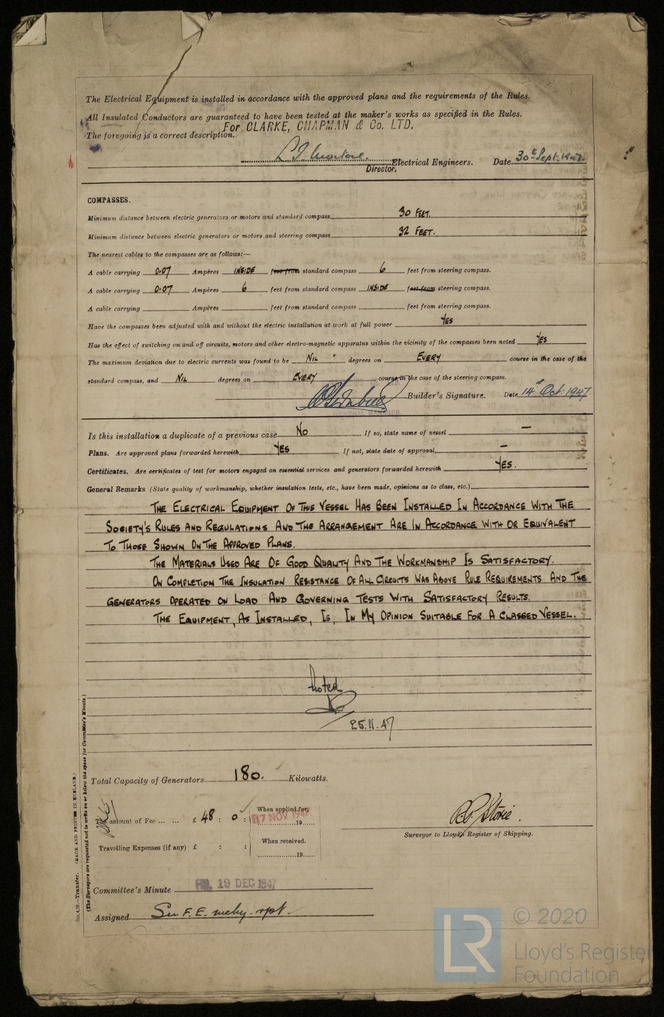 The Electrical Equipment is installed in accordance with the approved plans and the requirements of the Rules.
All Insulated Conductors are guaranteed to have been tested at the maker's works as specified in the Rules.
For CLARKE, CHAPMAN & Co. LTD.
The foregoing is a correct description.
Electrical Engineers. Date 30th Sept. 1947
Director.
COMPASSES.
Minimum distance between electric generators or motors and standard compass 30 FEET.
Minimum distance between electric generators or motors and steering compass 32 FEET.
The nearest cables to the compasses are as follows:—
A cable carrying 0.07 Ampères INSIDE feet from standard compass 6 feet from steering compass.
A cable carrying 0.07 Ampères 6 feet from standard compass INSIDE feet from steering compass.
A cable carrying Ampères feet from standard compass feet from steering compass.
Have the compasses been adjusted with and without the electric installation at work at full power YES
Has the effect of switching on and off circuits, motors and other electro-magnetic apparatus within the vicinity of the compasses been noted YES
The maximum deviation due to electric currents was found to be NIL degrees on EVERY course in the case of the
standard compass, and NIL degrees on EVERY course in the case of the steering compass.
Builder's Signature. Date 14th Oct. 1947
Is this installation a duplicate of a previous case NO If so, state name of vessel —
Plans. Are approved plans forwarded herewith YES If not, state date of approval —
Certificates. Are certificates of test for motors engaged on essential services and generators forwarded herewith YES.
General Remarks (State quality of workmanship, whether insulation tests, etc., have been made, opinions as to class, etc.)
THE ELECTRICAL EQUIPMENT OF THIS VESSEL HAS BEEN INSTALLED IN ACCORDANCE WITH THE
SOCIETY'S RULES AND REGULATIONS AND THE ARRANGEMENT ARE IN ACCORDANCE WITH OR EQUIVALENT
TO THOSE SHOWN ON THE APPROVED PLANS.
THE MATERIALS USED ARE OF GOOD QUALITY AND THE WORKMANSHIP IS SATISFACTORY.
ON COMPLETION THE INSULATION RESISTANCE OF ALL CIRCUITS WAS ABOVE RULE REQUIREMENTS AND THE
GENERATORS OPERATED ON LOAD AND GOVERNING TESTS WITH SATISFACTORY RESULTS.
THE EQUIPMENT, AS INSTALLED, IS, IN MY OPINION SUITABLE FOR A CLASSED VESSEL.
Noted
25.11.47
Total Capacity of Generators 180. Kilowatts.
The amount of Fee ... ... £ 48 : 0 : When applied for, 17 NOV 1947 19
Travelling Expenses (if any) £ : : When received. 19
Surveyor to Lloyd's Register of Shipping.
Committee's Minute FRI. 19 DEC 1947
Assigned See F.E. mchy. rpt.
(The Surveyors are requested not to write on or below the space for Committee's Minute.)
© 2020
LR
Lloyd's Register
Foundation